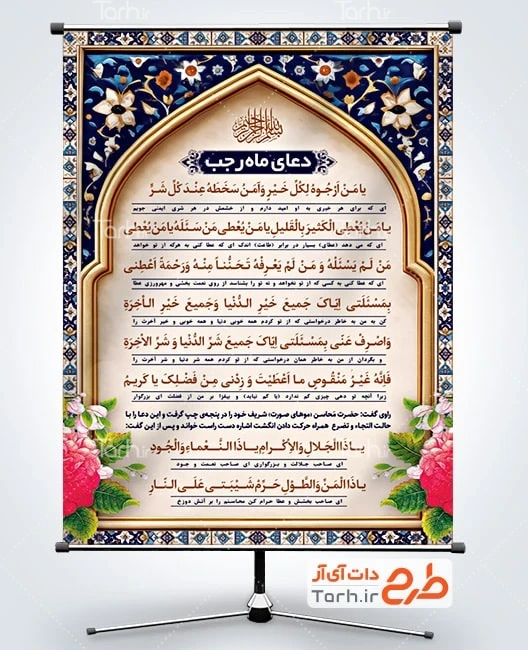 بسم الله الرحمن الرحیم
دعای ماه رجب
یا مَنْ اَرْجُوهُ لِکُلِّ خَیْرٍ وَ آمَنُ سَخَطَهُ عِنْدَ کُلِّ شَرٍّ
ای که برای هر خیری به او امید دارم و از خشمش در هر شری ایمنی جویم
یا مَنْ یُعْطِی الْکَثیرَ بِالْقَلیلِ یا مَنْ یُعْطی مَنْ سَئَلَهُ یا مَنْ یُعْطی
ای که می دهد (عطای) بسیار در برابر (طاعت) اندک ای که عطا کنی به هرکه از تو خواهد
مَنْ لَمْ یَسْئَلْهُ وَ مَنْ لَمْ یَعْرِفْهُ تَحَنُّناً مِنْهُ وَ رَحْمَةً اَعْطِنی
ای که عطا کنی به کسی که از تو نخواهد و نه تو را بشناسد از روی نعمت بخشی و مهرورزی عطا
بِمَسْئَلَتی اِیّاکَ جَمیعَ خَیْرِ الدُّنْیا وَ جَمیعَ خَیْرِ الْآخِرَةِ
کن به من به خاطر درخواستی که از تو کردم همه خوبی دنیا و همه خوبی و خیر آخرت را
وَ اصْرِفْ عَنّی بِمَسْئَلَتی اِیّاکَ جَمیعَ شَرِّ الدُّنْیا وَ شَرِّ الْآخِرَةِ
و بگردان از من به خاطر همان درخواستی که از تو کردم همه شر دنیا و شر آخرت را
فَاِنَّهُ غَیْرُ مَنْقُوصٍ ما اَعْطَیْتَ وَ زِدْنی مِنْ فَضْلِکَ یا کَریمُ
زیرا آنچه تو دهی چیزی کم ندارد (یا کم نیاید) و بیفزا بر من از فضلت ای بزرگوار
راوی گفت: حضرت محاسن «موهای صورت» شریف خود را در پنجه‌ی چپ گرفت و این دعا را با
حالت التجاء و تضرع همراه حرکت دادن انگشت اشاره دست راست خواند و پس از این گفت:
یا ذَا الْجَلالِ وَ الْاِکْرامِ یا ذَا النَّعْماءِ وَ الْجُودِ
ای صاحب جلالت و بزرگواری ای صاحب نعمت و جود
یا ذَا الْمَنِّ وَ الطَّوْلِ حَرِّمْ شَیْبَتی عَلَی النّارِ
ای صاحب بخشش و عطا حرام کن محاسنم را بر آتش دوزخ
طرح
دات آی آر
Tarh.ir